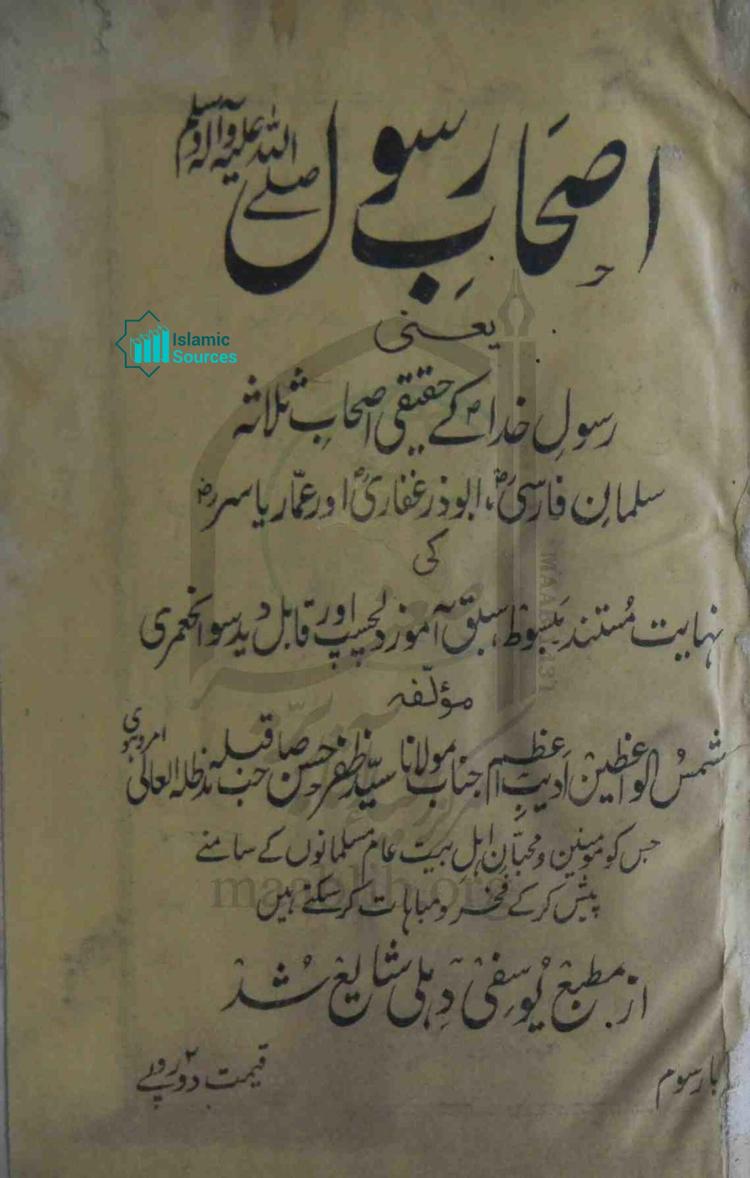 اصحابِ رسول صلے اللہ علیہ وآلہ وسلم
Islamic
Sources
یعنی
رسولِ خدا ؐ کے حقیقی اصحابِ ثلاثہ
سلمانِ فارسیؓ، ابوذر غفاریؓ اور عمّار یاسرؓ
کی
نہایت مُستند مبسوط، سبق آموز دلچسپ اور قابل دید سوانحعمری
مؤلّفہ
شمسُ الواعظین ادیبِ اعظم جناب مولانا سیّد ظفر حسن صاحب قبلہ مدظلہ العالی امروہوی
جس کو مومنین و محبّانِ اہلِ بیت عام مسلمانوں کے سامنے
maablib.org
پیش کر کے فخر و مباہات کر سکتے ہیں
از مطبع یُوسفی دہلی شایع شُد
بار سوم
قیمت دو روپے ۲